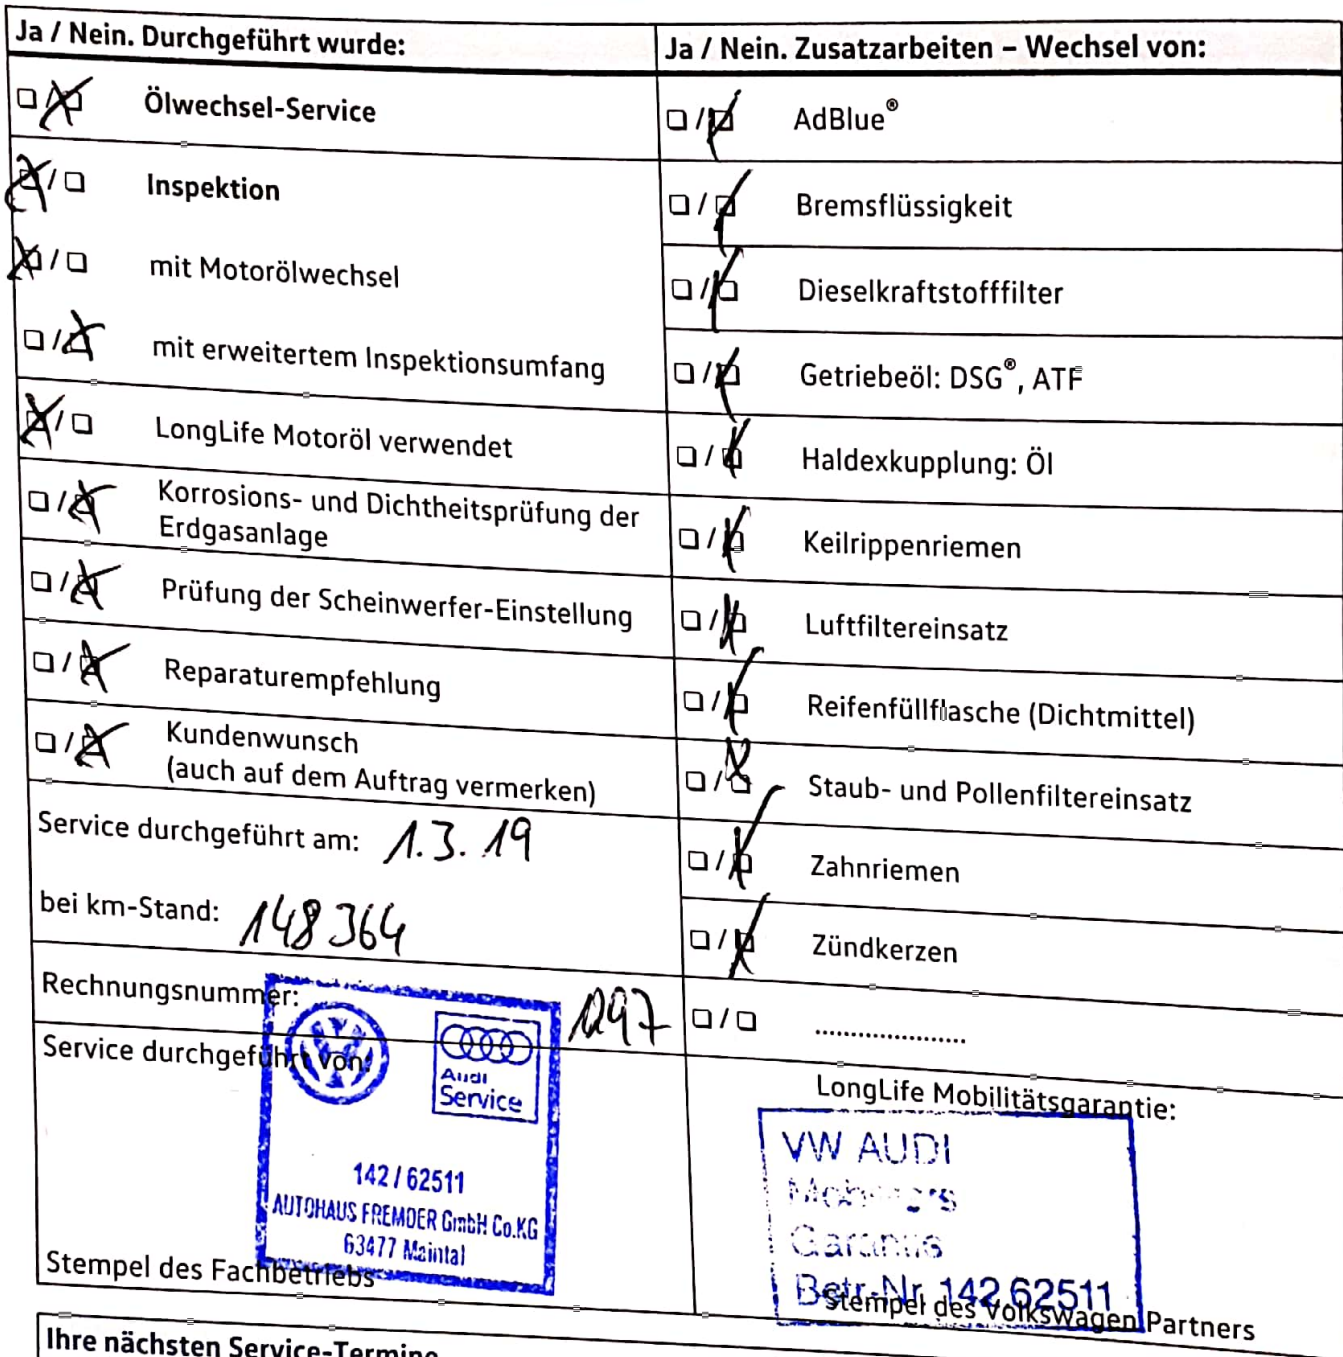 Ja / Nein. Durchgeführt wurde:
Ölwechsel-Service
Inspektion
mit Motorölwechsel
mit erweitertem Inspektionsumfang
LongLife Motoröl verwendet
Korrosions- und Dichtheitsprüfung der
Erdgasanlage
Prüfung der Scheinwerfer-Einstellung
Reparaturempfehlung
Kundenwunsch
(auch auf dem Auftrag vermerken)
Service durchgeführt am: 1.3.19
bei km-Stand: 148364
Rechnungsnummer:
Service durchgeführt von:
Audi
Service
142 / 62511
AUTOHAUS FREMDER GmbH Co.KG
63477 Maintal
Stempel des Fachbetriebs
Ja / Nein. Zusatzarbeiten – Wechsel von:
AdBlue®
Bremsflüssigkeit
Dieselkraftstofffilter
Getriebeöl: DSG®, ATF
Haldexkupplung: Öl
Keilrippenriemen
Luftfiltereinsatz
Reifenfüllflasche (Dichtmittel)
Staub- und Pollenfiltereinsatz
Zahnriemen
Zündkerzen
....................
LongLife Mobilitätsgarantie:
VW AUDI
Garantie
Betr.-Nr. 142 62511
Stempel des Volkswagen Partners
Ihre nächsten Service-Termine